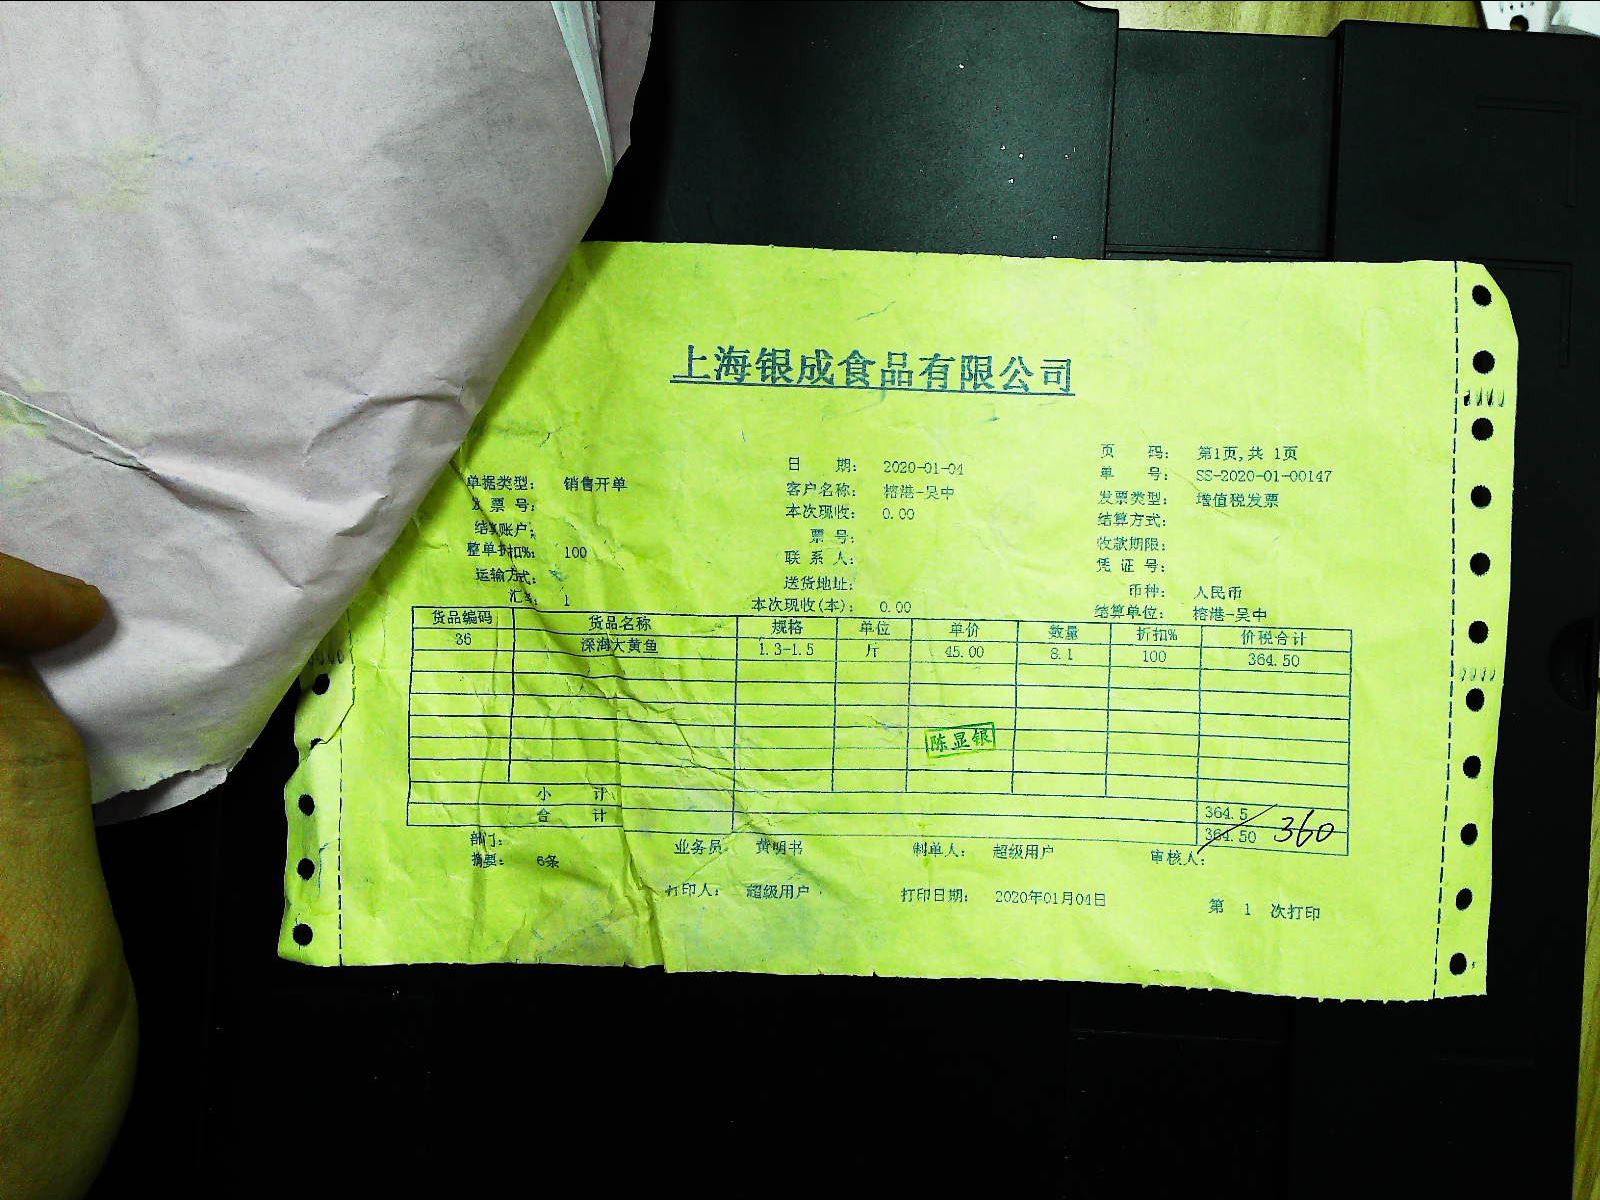 上海银成食品有限公司
单据类型: 销售开单 日 期: 2020-01-04 页 码: 第1页,共 1页
发 票 号: 客户名称: 榕港-吴中 单 号: SS-2020-01-00147
结算账户: 本次现收: 0.00 发票类型: 增值税发票
整单折扣%: 100 票 号: 结算方式:
运输方式: 联 系 人: 收款期限:
汇率: 1 送货地址: 凭 证 号:
本次现收(本): 0.00 币种: 人民币
结算单位: 榕港-吴中
货品编码 货品名称 规格 单位 单价 数量 折扣% 价税合计
36 深海大黄鱼 1.3-1.5 斤 45.00 8.1 100 364.50
陈显银
小 计 364.5
合 计 364.50 360
部门: 业务员: 黄明书 制单人: 超级用户 审核人:
摘要: 6条
打印人: 超级用户 打印日期: 2020年01月04日 第 1 次打印